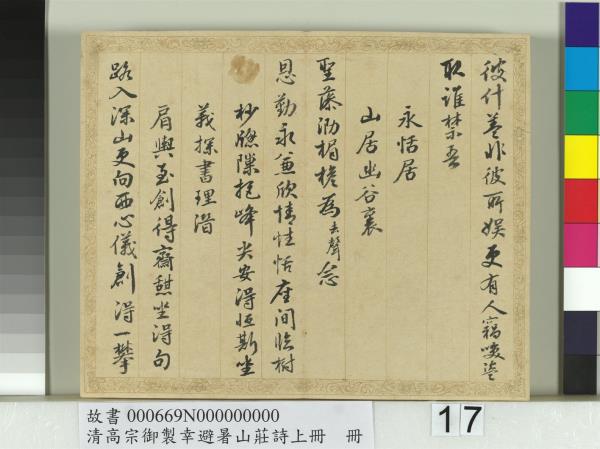 彼什葢非彼所娛更有人竊
取誰禁吾
永恬居
山居幽谷裏
聖藻泐楣檐為去聲念
恩勤永兼欣情性恬座間臨樹
杪牕隙挹峰尖安得恒斯坐
義探書理潛
肩輿至創得齋憇坐得句
路入深山更向西心儀創得一攀
故書 000669N000000000
清高宗御製幸避暑山莊詩上冊 冊
17